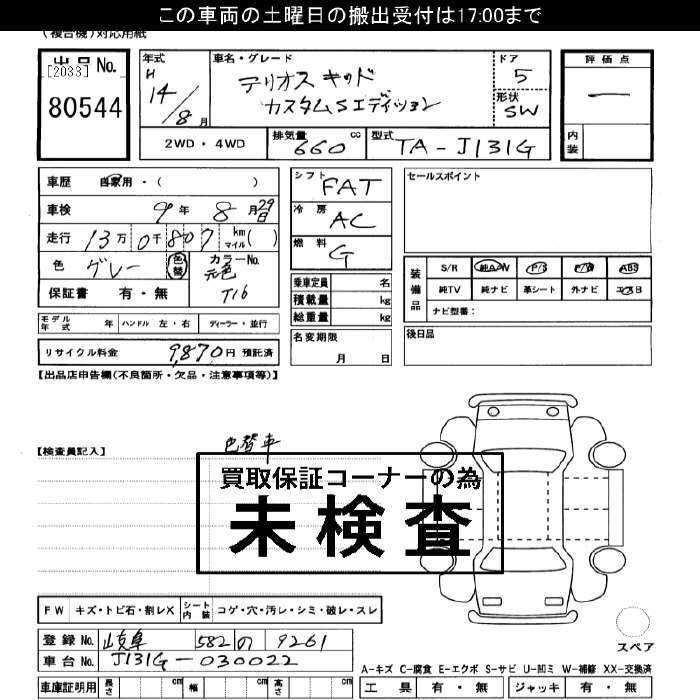 この車両の土曜日の搬出受付は17:00まで
(複合機)対応用紙
出品No. [2033] 80544
年式 H 14/8月
車名・グレード テリオスキッド カスタムSエディション
ドア 5
形状 SW
評価点 —
内装
2WD・4WD 排気量 660 cc 型式 TA-J131G
車歴 自家用・( )
車検 9年 8月29日
走行 13万0千807 km マイル( )
色 グレー 色替 カラーNo. 元色 T16
保証書 有・無
シフト FAT
冷房 AC
燃料 G
乗車定員 名
積載量 kg
総重量 kg
セールスポイント
装備品 S/R 純AW P/S P/W ABS
純TV 純ナビ 革シート 外ナビ エアB
ナビ型番:
モデル年式 年 ハンドル 左・右 ディーラー・並行
名変期限 月 日
後日品
リサイクル料金 9,870円 預託済
【出品店申告欄(不良箇所・欠品・注意事項等)】
【検査員記入】
色替車
買取保証コーナーの為
未検査
FW キズ・トビ石・割レX シート内装 コゲ・穴・汚レ・シミ・破レ・スレ
登録No. 岐阜 582 の 9261
車台No. J131G-030022
スペア
A-キズ C-腐食 E-エクボ S-サビ U-凹ミ W-補修 XX-交換済
車庫証明用 長さ cm 幅 cm 高さ cm 工具 有・無 ジャッキ 有・無